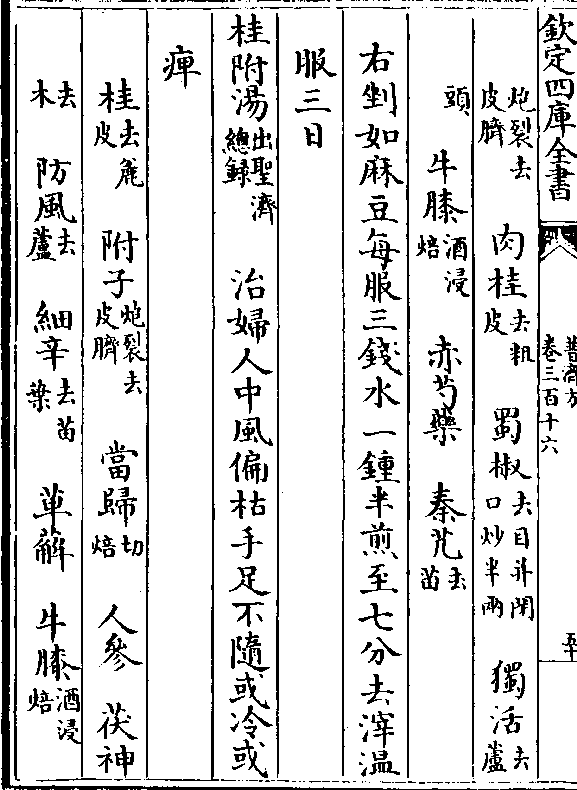 欽定四庫全書
普濟方
卷三百十六
炮裂去皮臍 肉桂去粗皮 蜀椒去目并閉口炒半兩 獨活去蘆
頭 牛膝酒浸焙 赤芍藥 秦艽去苗
右剉如麻豆每服三錢水一鍾半煎至七分去滓温
服三日
桂附湯出聖濟總録 治婦人中風偏枯手足不隨或冷或
痺
桂去麄皮 附子炮裂去皮臍 當歸切焙 人參 茯神
去木 防風去蘆 細辛去苗葉 萆薢 牛膝酒浸焙